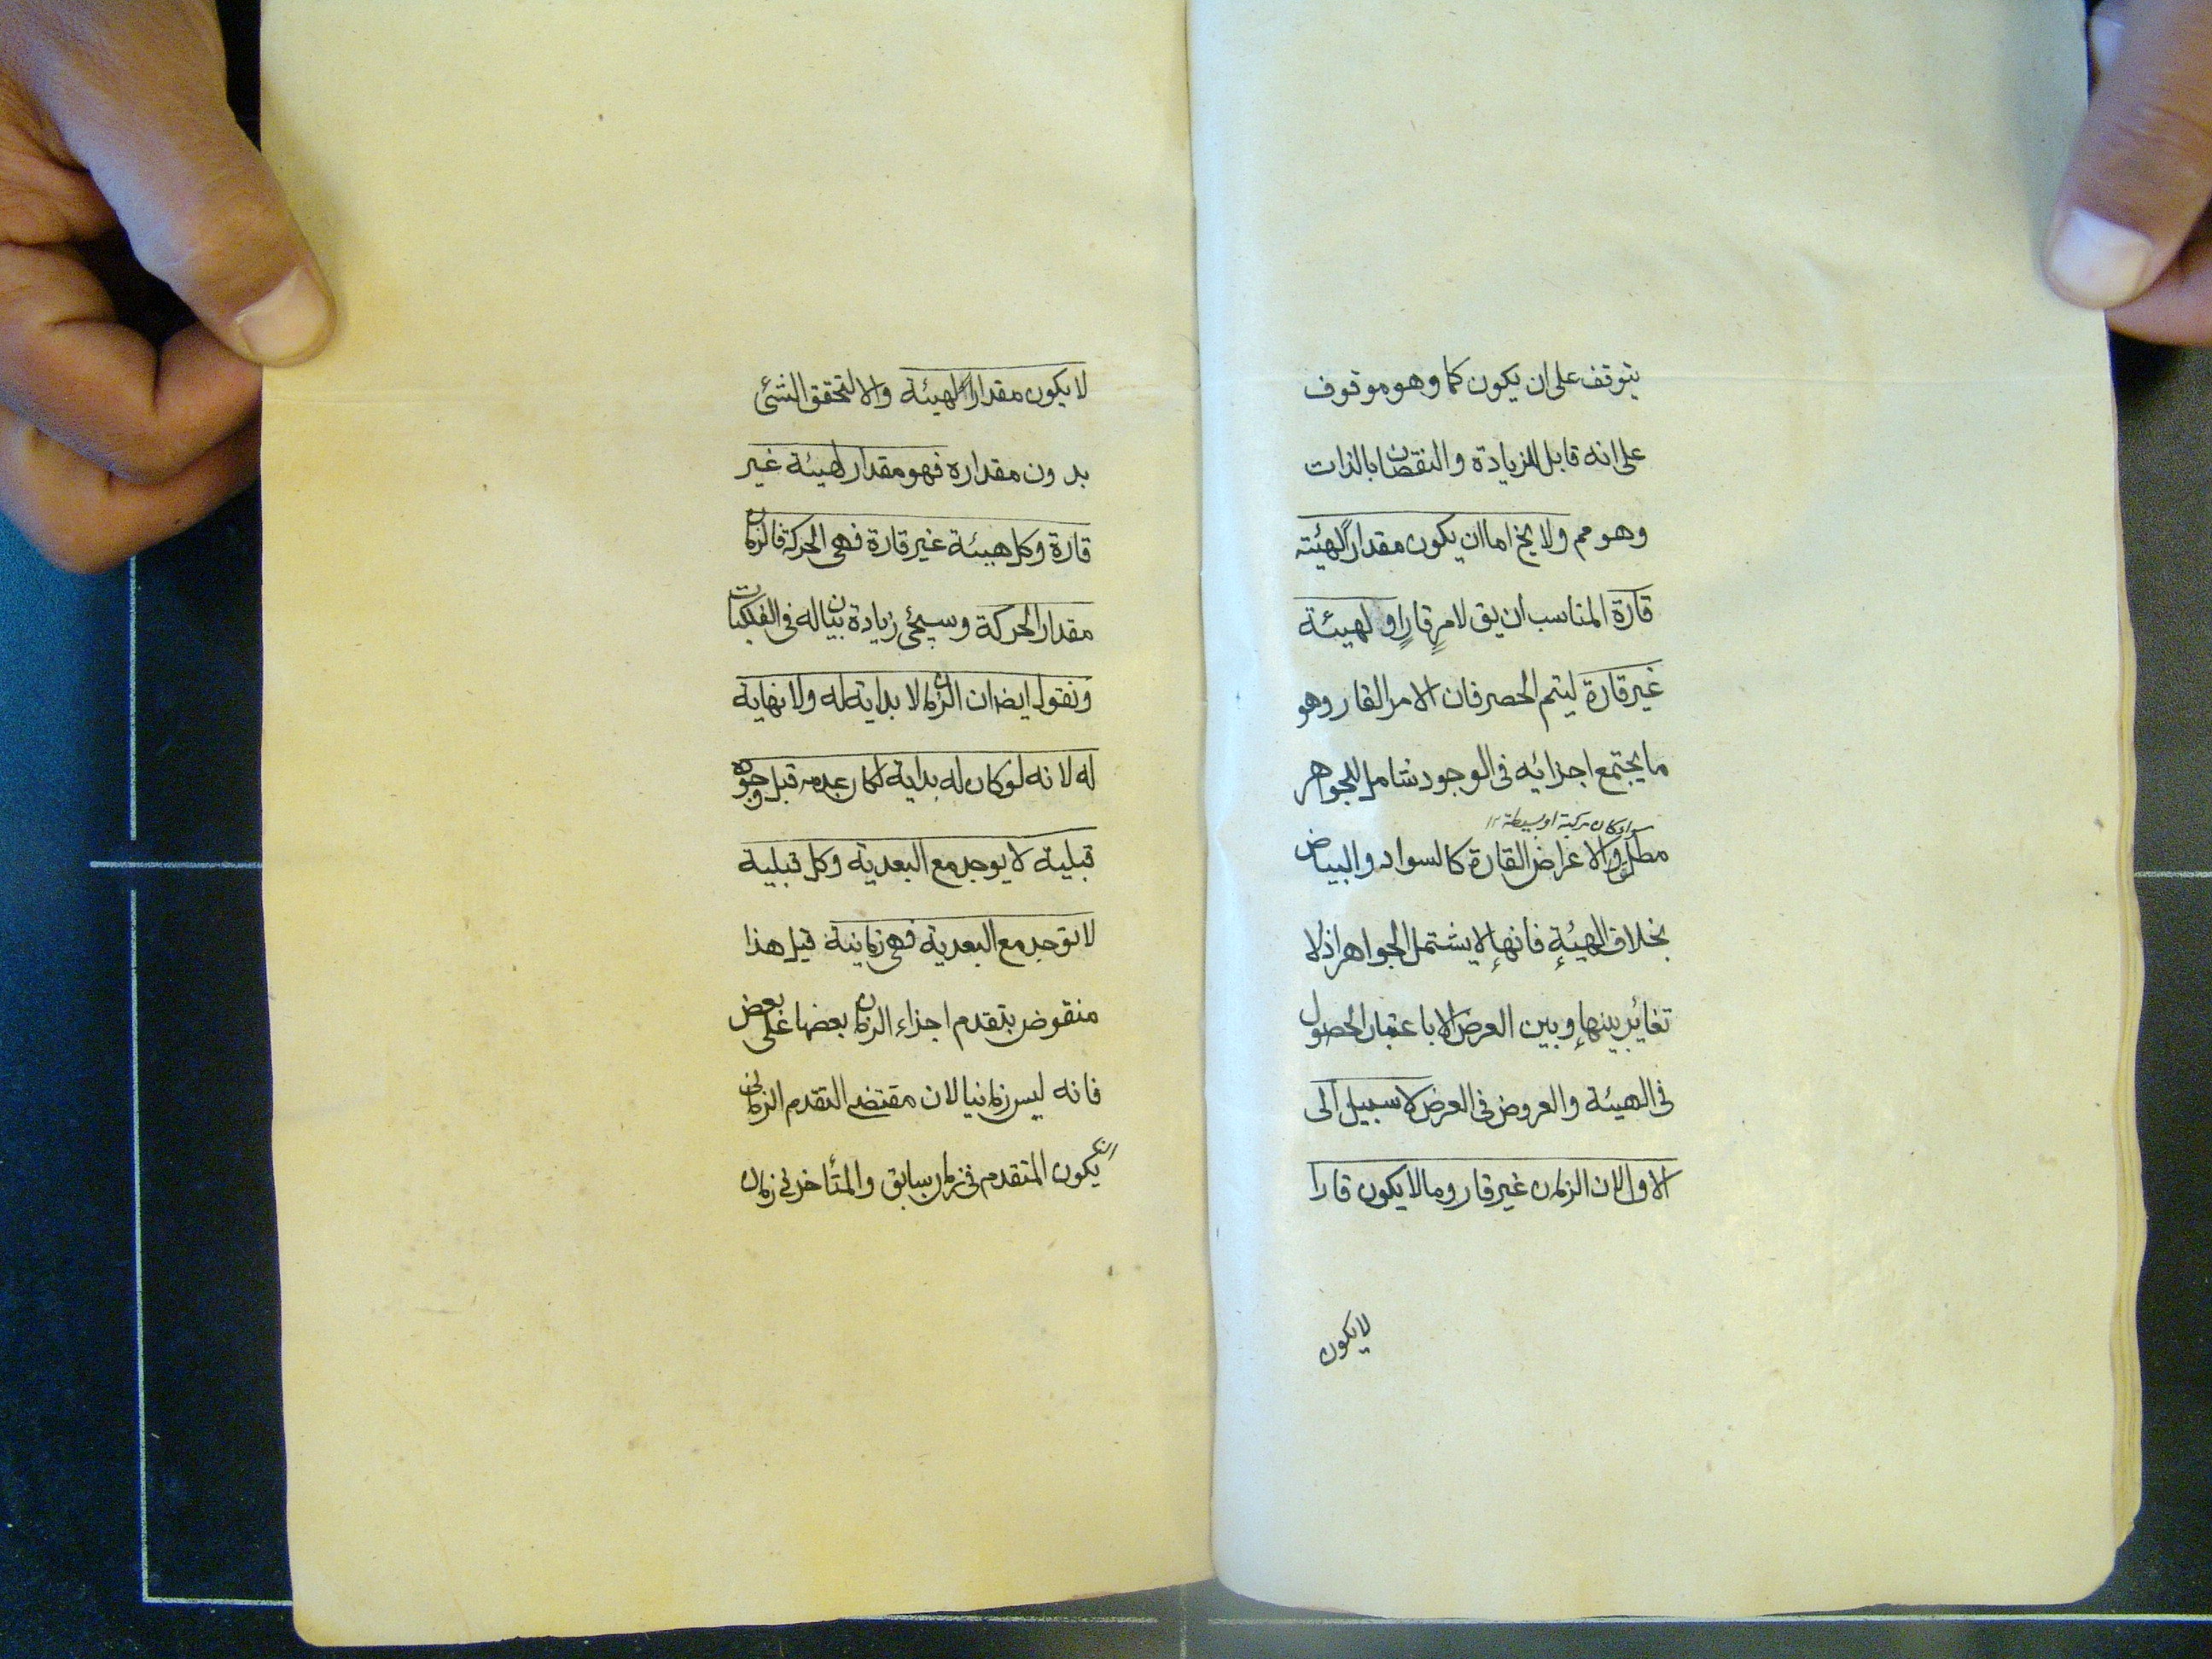 يتوقف على ان يكون كما وهو موقوف
على انه قابل للزيادة والنقصان بالذات
وهو مم ولا يخ اما ان يكون مقدارا لهيئته
قارة المناسب ان يق لامرٍ قارٍ او لهيئة
غير قارة ليتم الحصر فان الامر القار وهو
ما يجتمع اجزائه فى الوجود شامل للجواهر
سواء كان مركبة او بسيطة ١٢
مطلقا والاعراض القارة كالسواد والبياض
بخلاف الهيئة فانها لا يشتمل الجواهر اذ لا
تغائر بينها وبين العرض الا باعتبار الحصول
فى الهيئة والعروض فى العرض لا سبيل الى
الاول لان الزمان غير قار وما لا يكون قارا
لا يكون
لا يكون مقدارا لهيئة والا لتحقق الشئ
بدون مقداره فهو مقدار لهيئة غير
قارة وكل هيئة غير قارة فهى الحركة فالزمان
مقدار الحركة وسيجئ زيادة بيان له فى الفلكيات
ونقول ايضا ان الزمان لا بداية له ولا نهاية
له لانه لو كان له بداية لكان عدمه قبل وجوده
قبلية لا يوجد مع البعدية وكل قبلية
لا توجد مع البعدية فهى زمانية قيل هذا
منقوض بتقدم اجزاء الزمان بعضها على بعض
فانه ليس زمانيا لان مقتضى التقدم الزمانى
ان يكون المتقدم فى زمان سابق والمتأخر فى زمان